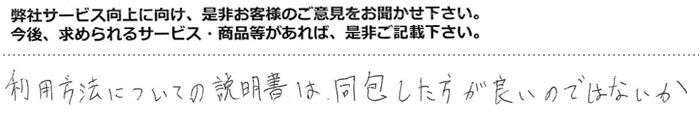 弊社サービス向上に向け、是非お客様のご意見をお聞かせ下さい。
今後、求められるサービス・商品等があれば、是非ご記載下さい。
利用方法についての説明書は、同包した方が良いのではないか